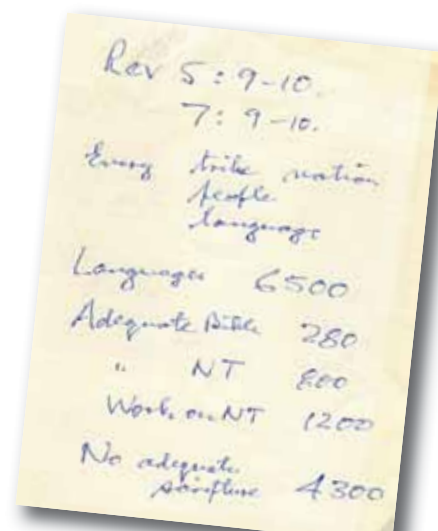 Rev 5:9-10.
7:9-10.
Every tribe nation
people
language
Languages 6500
Adequate Bible 280
" NT 800
Work on NT 1200
No adequate
scripture 4300